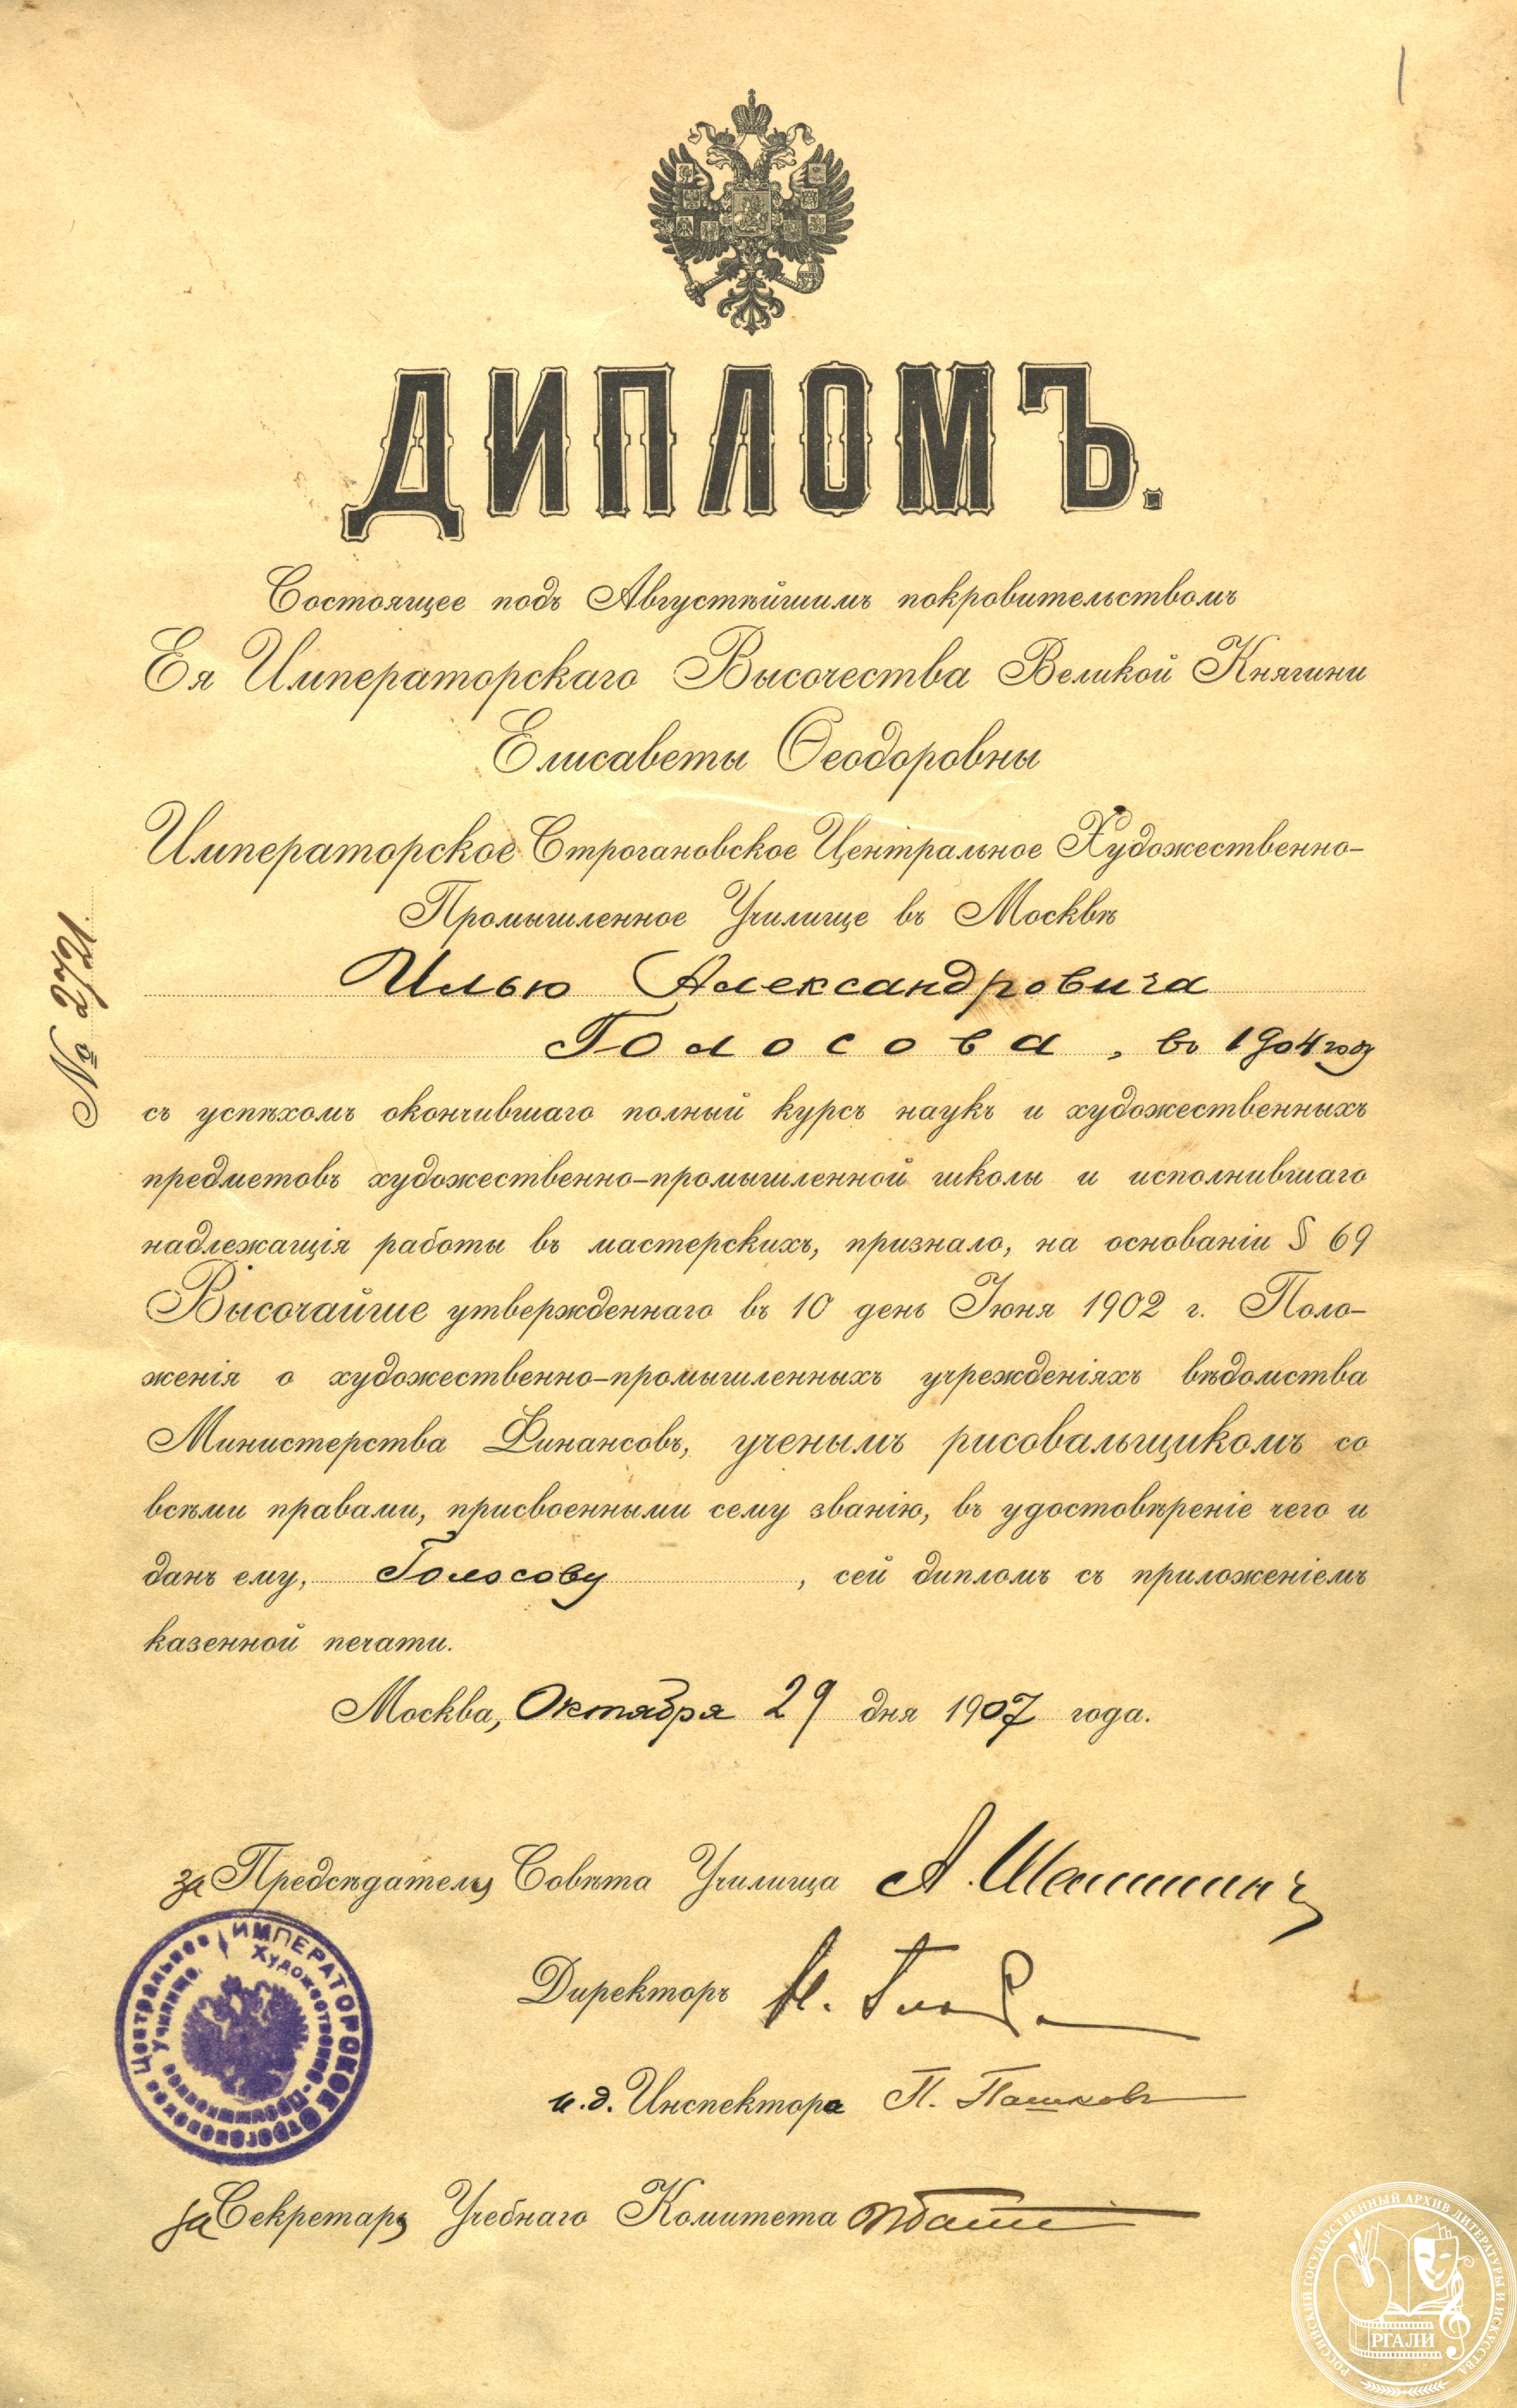 1
ДИПЛОМЪ.
Состоящее подъ Августѣйшимъ покровительствомъ
Ея Императорскаго Высочества Великой Княгини
Елисаветы Ѳеодоровны
Императорское Строгановское Центральное Художественно-
Промышленное Училище въ Москвѣ
№ 2721.
Илью Александровича
Голосова, въ 1904 году
съ успѣхомъ окончившаго полный курсъ наукъ и художественныхъ
предметовъ художественно-промышленной школы и исполнившаго
надлежащія работы въ мастерскихъ, признало, на основаніи § 69
Высочайше утвержденнаго въ 10 день Іюня 1902 г. Поло-
женія о художественно-промышленныхъ учрежденіяхъ вѣдомства
Министерства Финансовъ, ученымъ рисовальщикомъ со
всѣми правами, присвоенными сему званію, въ удостовѣреніе чего и
данъ ему, Голосову, сей дипломъ съ приложеніемъ
казенной печати.
Москва, Октября 29 дня 1907 года.
за Предсѣдателя Совѣта Училища А.
Директоръ Н.
и.д. Инспектора П. Пашковъ
за Секретаря Учебнаго Комитета
ИМПЕРАТОРСКОЕ Строгановское Центральное
Художественно-Промышленное Училище
РОССИЙСКИЙ ГОСУДАРСТВЕННЫЙ АРХИВ ЛИТЕРАТУРЫ И ИСКУССТВА
РГАЛИ